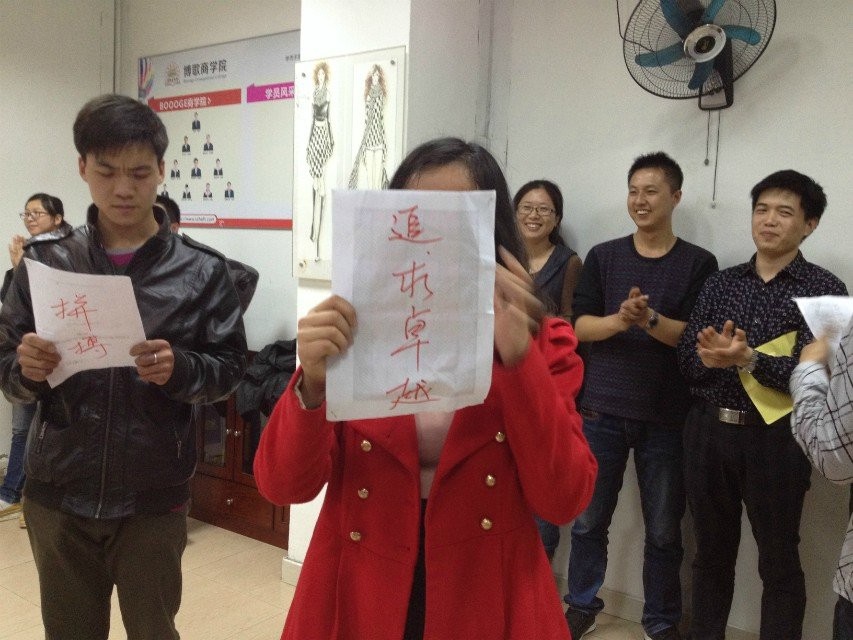 博歌商学院
BOOOGE商学院
学员风采
追求卓越
拼搏